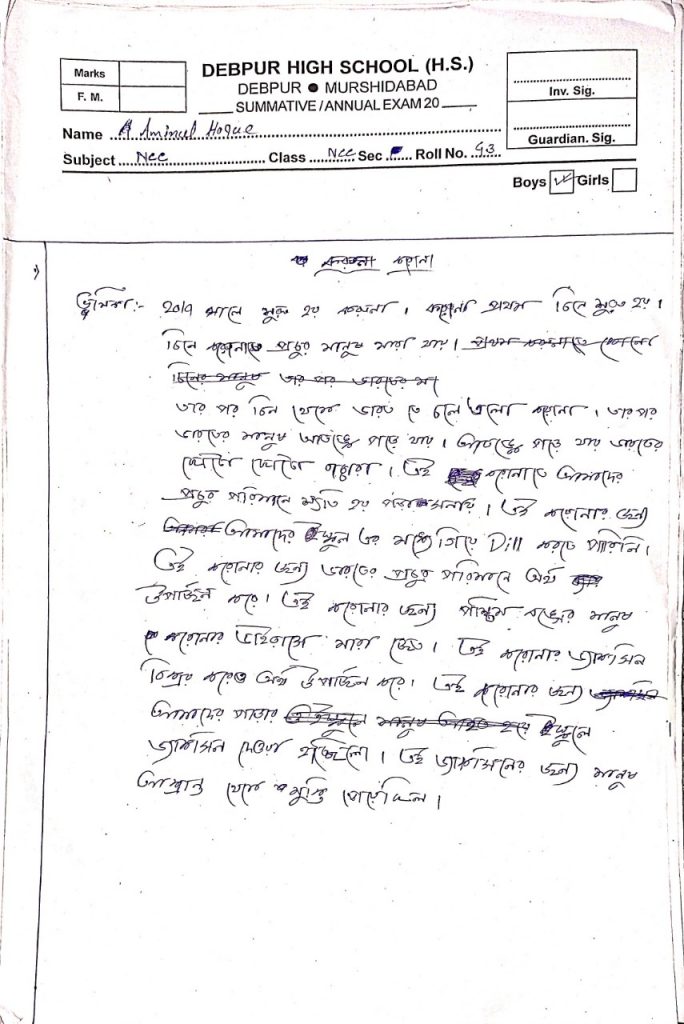 DEBPUR HIGH SCHOOL (H.S.)
DEBPUR ● MURSHIDABAD
SUMMATIVE / ANNUAL EXAM 20
Marks
F. M.
Inv. Sig.
Guardian. Sig.
Name Aminul Hoque
Subject Ncc Class Ncc Sec Roll No. 93
Boys Girls
করোনা
১)
ভূমিকা:- ২০১৭ সালে শুরু হয় করোনা। করোনা প্রথম চিনে শুরু হয়।
চিনে করোনাতে প্রচুর মানুষ মারা যায়।
তার পর চিন থেকে ভারত তে চলে এলো করোনা। তারপর
ভারতের মানুষ আতঙ্কে পড়ে যায়। আতঙ্কে পড়ে যায় ভারতের
ছোটো ছোটো বাচ্চারা। এই করোনাতে আমাদের
প্রচুর পরিমানে ক্ষতি হয় পড়াশুনায়। এই করোনার জন্য
আমাদের স্কুল এর মধ্যে গিয়ে Dill করতে পারিনি।
এই করোনার জন্য ভারতের প্রচুর পরিমানে অর্থ
উপার্জন করে। এই করোনার জন্য পশ্চিম বঙ্গের মানুষ
করোনার ভাইরাসে মারা গেছে। এই করোনার ভ্যাকসিন
বিক্রয় করেও অর্থ উপার্জন করে। এই করোনার জন্য
আমাদের পাড়ার স্কুলে
ভ্যাকসিন দেওয়া হচ্ছিলো। এই ভ্যাকসিনের জন্য মানুষ
থেকে মুক্তি পেয়েছিল।